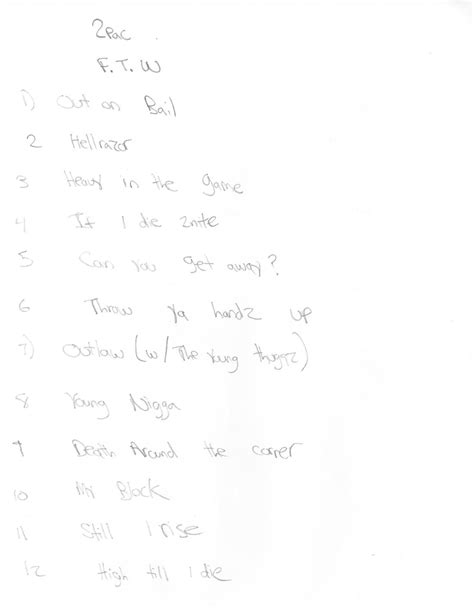 2Pac
F.T.W
1) Out on Bail
2 Hellrazor
3 Heavy in the game
4 If I die 2nite
5 Can you get away?
6 Throw ya handz up
7) Outlaw (w/ The young thugz)
8 Young Nigga
9 Death Around the corner
10 My Block
11 Still I rise
12 High till I die